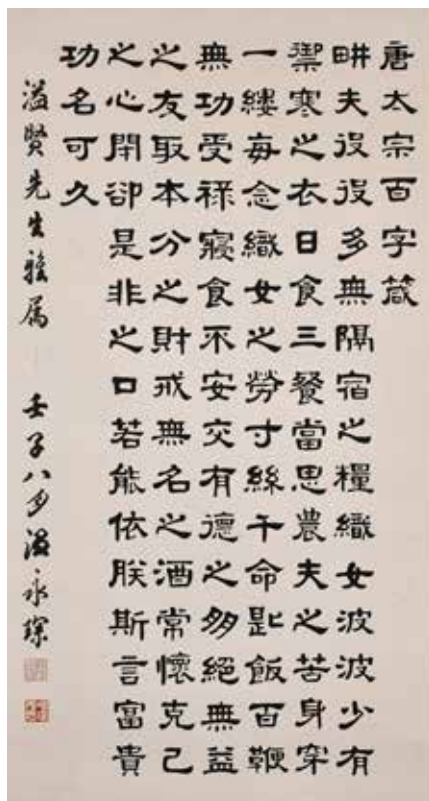 唐太宗百字箴
畊夫役役多無隔宿之糧織女波波少有
禦寒之衣日食三餐當思農夫之苦身穿
一縷每念織女之勞寸絲千命匙飯百鞭
無功受祿寢食不安交有德之朋絕無益
之友取本分之財戒無名之酒常懷克己
之心閉卻是非之口若能依朕斯言富貴
功名可久
溢賢先生雅属 壬子八月溫永琛